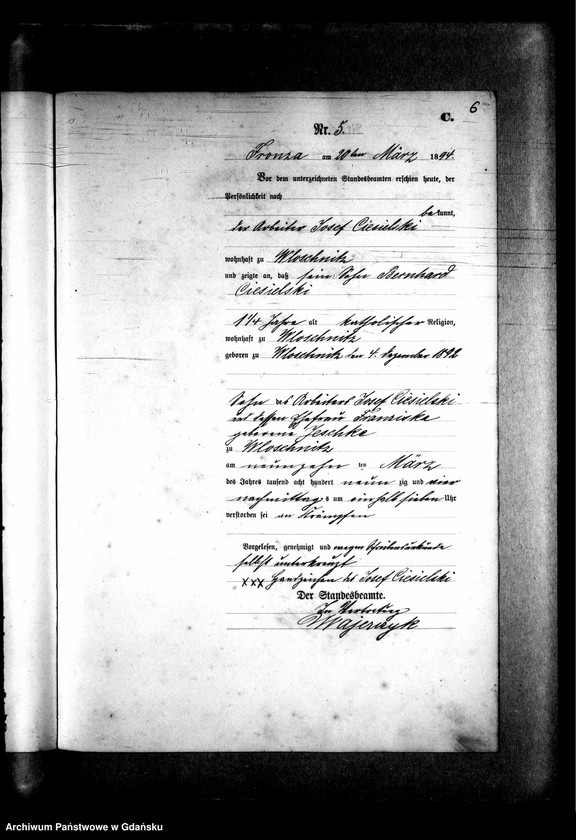 6
C.
Nr. 5.
Fronza am 20ten März 1894.
Vor dem unterzeichneten Standesbeamten erschien heute, der
Persönlichkeit nach
bekannt,
der Arbeiter Josef Ciesielski
wohnhaft zu Wloschnitz
und zeigte an, daß sein Sohn Bernhard
Ciesielski
1 1/4 Jahre alt katholischer Religion,
wohnhaft zu Wloschnitz
geboren zu Wloschnitz den 4. Dezember 1892
Sohn des Arbeiters Josef Ciesielski
und dessen Ehefrau Franziska
geborene Jeschke
zu Wloschnitz
am neunzehn ten März
des Jahres tausend acht hundert neun zig und vier
nachmittags um einhalb sieben Uhr
verstorben sei an Krämpfen
Vorgelesen, genehmigt und wegen Schreibensunkunde
selbst unterkreuzt
xxx Handzeichen des Josef Ciesielski
Der Standesbeamte.
In Vertretung
Majewsyk
Archiwum Państwowe w Gdańsku